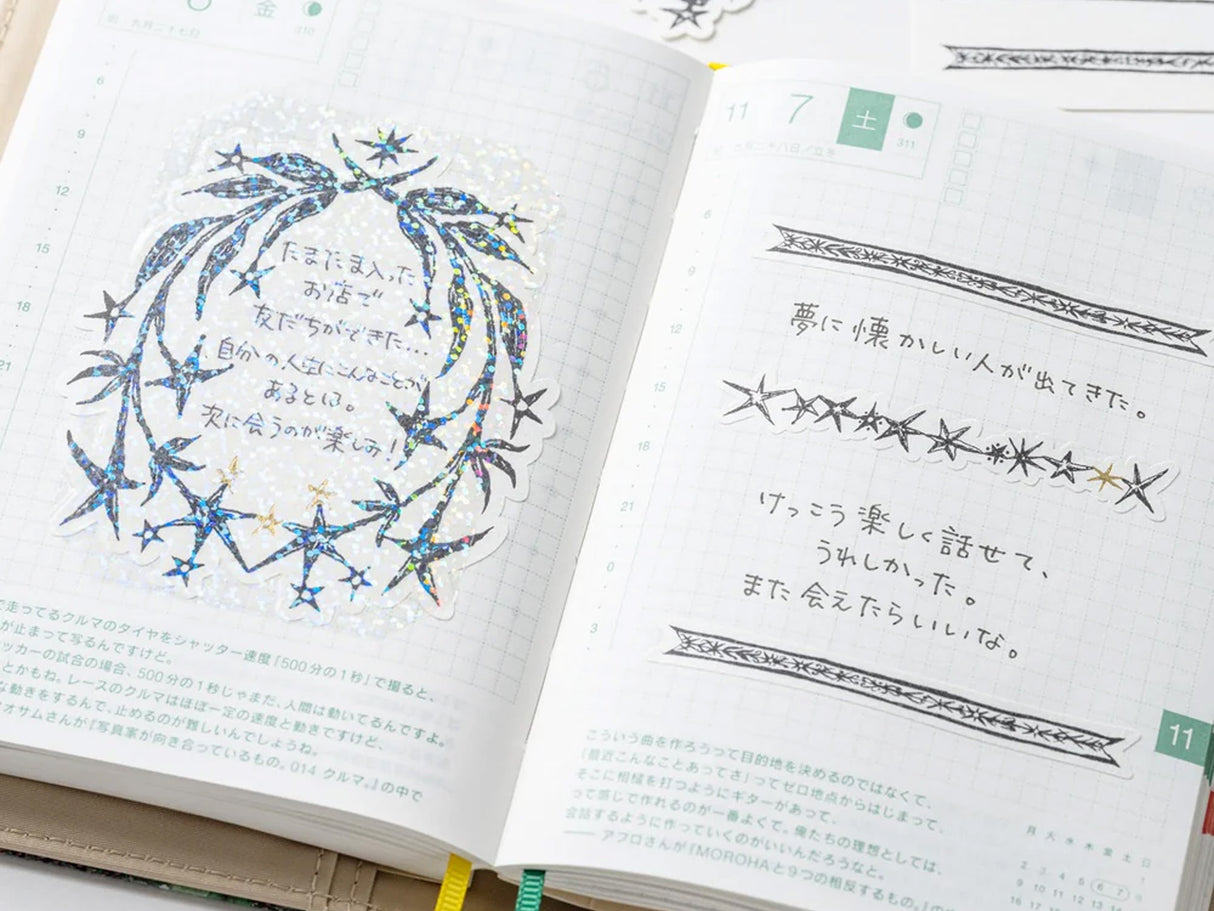 金
310
旧 九月二十七日
6
9
12
15
18
21
たまたま入った
お店で
友だちができた…
自分の人生にこんなことが
あるとは。
次に会うのが楽しみ!
で走ってるクルマのタイヤをシャッター速度『500分の1秒』で撮ると、
が止まって写るんですけど。
ッカーの試合の場合、500分の1秒じゃまだ、人間は動いてるんですよ。
とかもね。レースのクルマはほぼ一定の速度と動きですけど、
な動きをするんで、止めるのが難しいんでしょうね。
オサムさんが『写真家が向き合っているもの。014 クルマ。』の中で
11 7 土
311
旧 九月二十八日/立冬
6
9
12
15
18
21
0
3
夢に懐かしい人が出てきた。
けっこう楽しく話せて、
うれしかった。
また会えたらいいな。
11
こういう曲を作ろうって目的地を決めるのではなくて、
「最近こんなことあってさ」ってゼロ地点からはじまって、
そこに相槌を打つようにギターがあって、
って感じで作れるのが一番よくて。俺たちの理想としては、
会話するように作っていくのがいいんだろうなと。
── アフロさんが『MOROHAと9つの相反するもの。』の
月 火 水 木 金 土 日
1
2 3 4 5 6 7 8
9 10 11 12 13 14
16 17 18 19